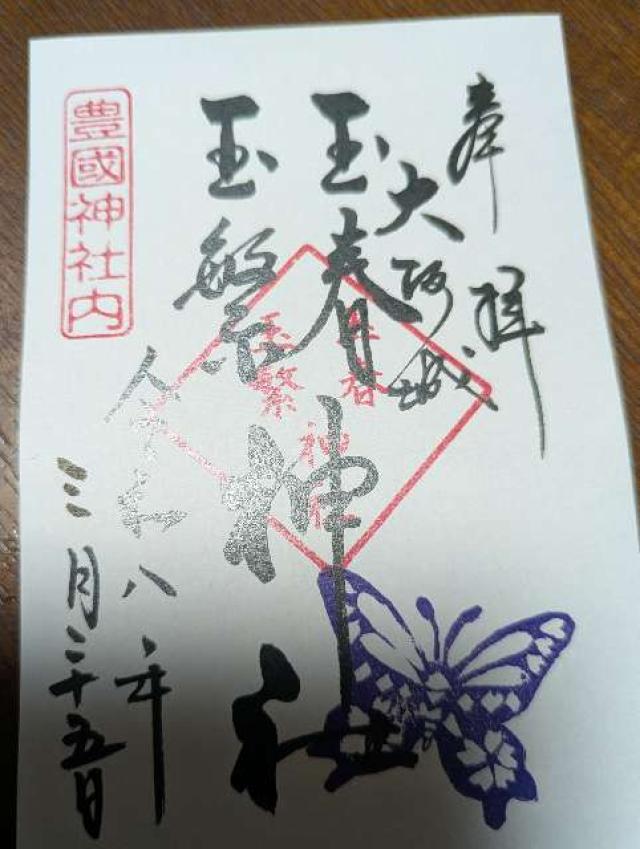 奉拝
大阪城
玉春
玉繁
神社
玉春
玉繁
神社
豊國神社内
令和八年
三月二十五日